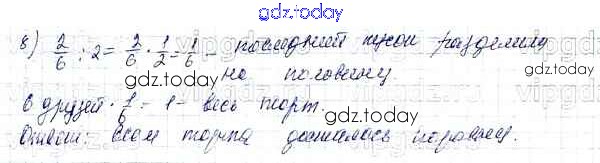 gdz.today
8) 2/6 : 2 = 2/6 · 1/2 = 1/6 – последний кусок разделили
на половину.
gdz.today
6 друзей · 1/6 = 1 – весь торт.
gdz.today
Ответ: всем торта досталось поровну.
gdz.today